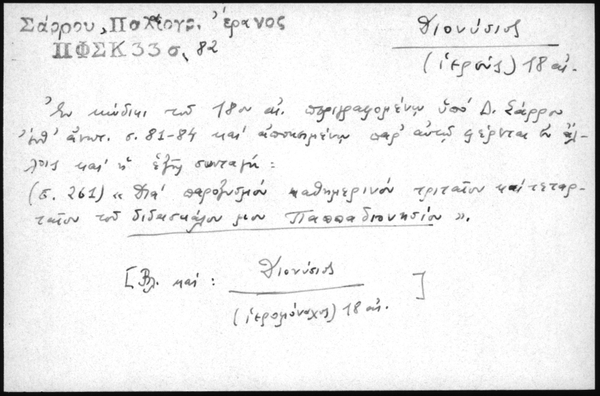 Σάρρου, Παλαιογρ. έρανος
ΠΦΣΚ 33 σ. 82
Διονύσιος
(ἱερεύς) 18 αἰ.
Ἐν κώδικι τοῦ 18ου αἰ. περιγραφομένῳ ὑπό Δ. Σάρρου
ἔνθ' ἀνωτ. σ. 81-84 καί ἀποκειμένῳ παρ' αὐτῷ φέρεται ἐν ἄλ-
λοις καί ἡ ἑξῆς συνταγή:
(σ. 261) «Διά παροξυσμόν καθημερινόν τριταῖον καί τεταρ-
ταῖον τοῦ διδασκάλου μου Παππαδιονυσίου».
[Βλ. καί: Διονύσιος
(ἱερομόναχος) 18 αἰ. ]